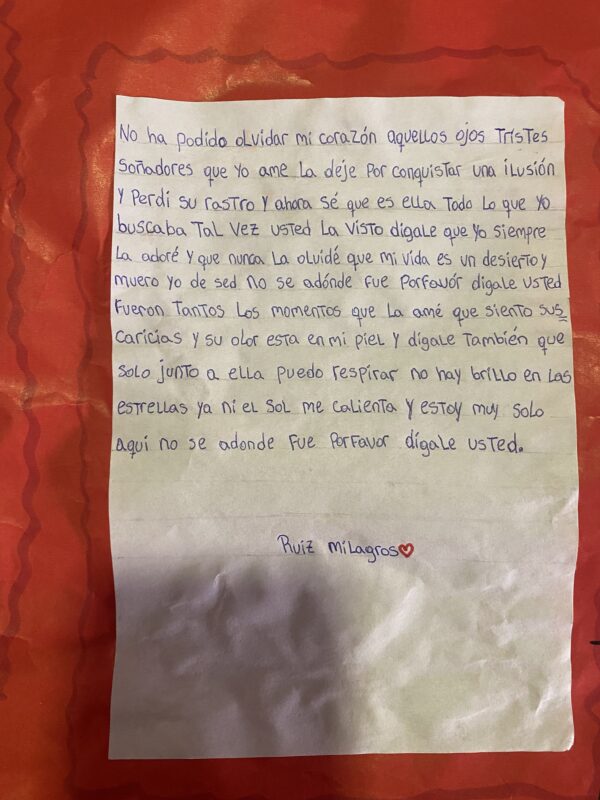 No ha podido olvidar mi corazón aquellos ojos Tristes
soñadores que yo ame La deje por conquistar una ilusión
y perdi su rastro y ahora sé que es ella Todo Lo que yo
buscaba Tal vez usted La visto digale que yo siempre
La adoré y que nunca La olvidé que mi vida es un desierto y
muero yo de sed no se adónde fue porfavór digale usted
fueron Tantos Los momentos que La amé que siento sus
caricias y su olor esta en mi piel y dígale También que
solo junto a ella puedo respirar no hay brillo en Las
estrellas ya ni el sol me calienta y estoy muy solo
aqui no se adonde fue porfavor dígale usted.
Ruiz milagros